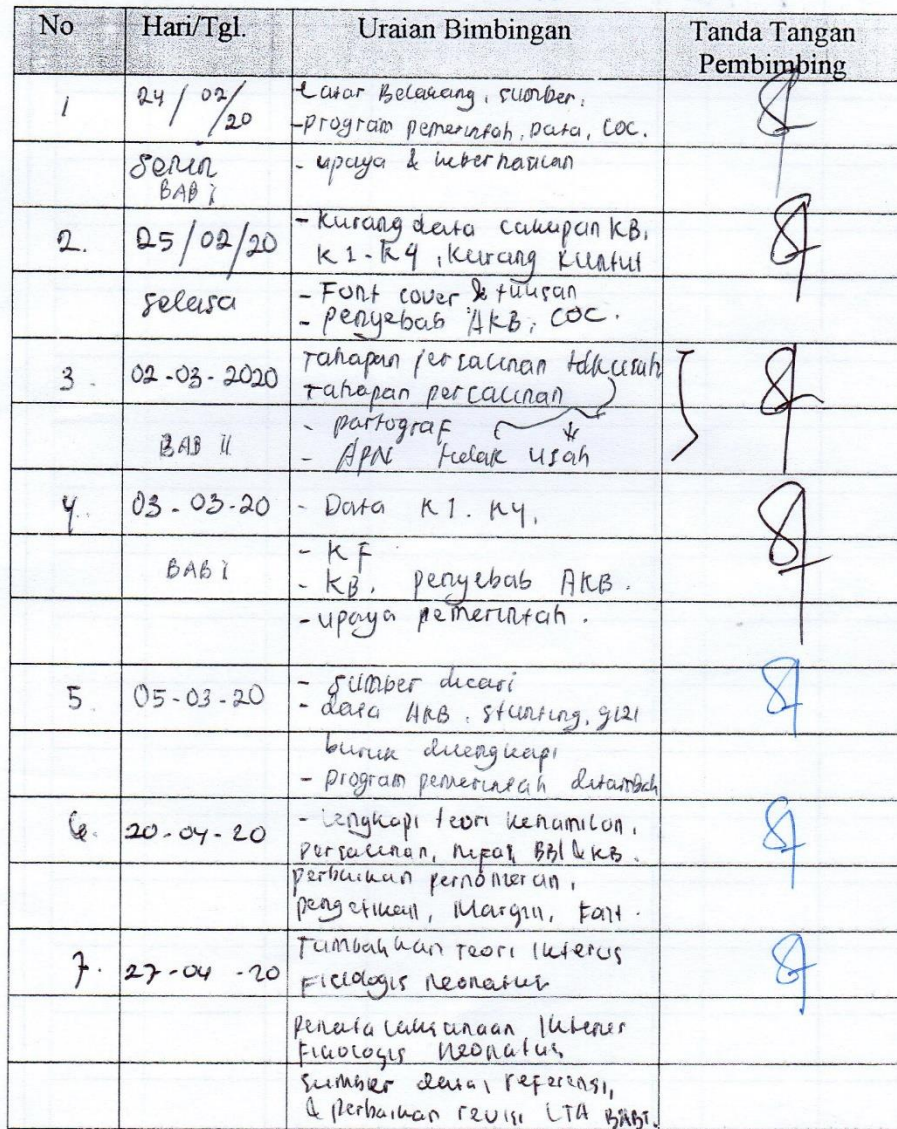 No Hari/Tgl. Uraian Bimbingan Tanda Tangan Pembimbing
1 24/02/20 Latar Belakang, sumber,
- program pemerintah, Data, COC.
Senin - upaya & keberhasilan
BAB I
2. 25/02/20 - Kurang data cakupan KB,
K1-K4, Kurang Runtut
Selasa - Font cover & tulisan
- penyebab AKB, COC.
3. 02-03-2020 Tahapan persalinan tdk usah
Tahapan persalinan
- partograf
BAB II - APN tidak usah
4. 03-03-20 - Data K1. K4,
- KF
BAB I - KB, penyebab AKB.
- upaya pemerintah.
5 05-03-20 - sumber dicari
- data AKB, stunting, gizi
buruk dilengkapi
- program pemerintah ditambah
6. 20-04-20 - Lengkapi teori kehamilan,
persalinan, nifas, BBL & KB.
perbaikan pernomeran,
pengetikan, Margin, Font.
7. 27-04-20 Tambahkan teori Ikterus
Fisiologis neonatus
penatalaksanaan Ikterus
Fisiologis Neonatus
sumber data, referensi,
& perbaikan revisi LTA BAB I.